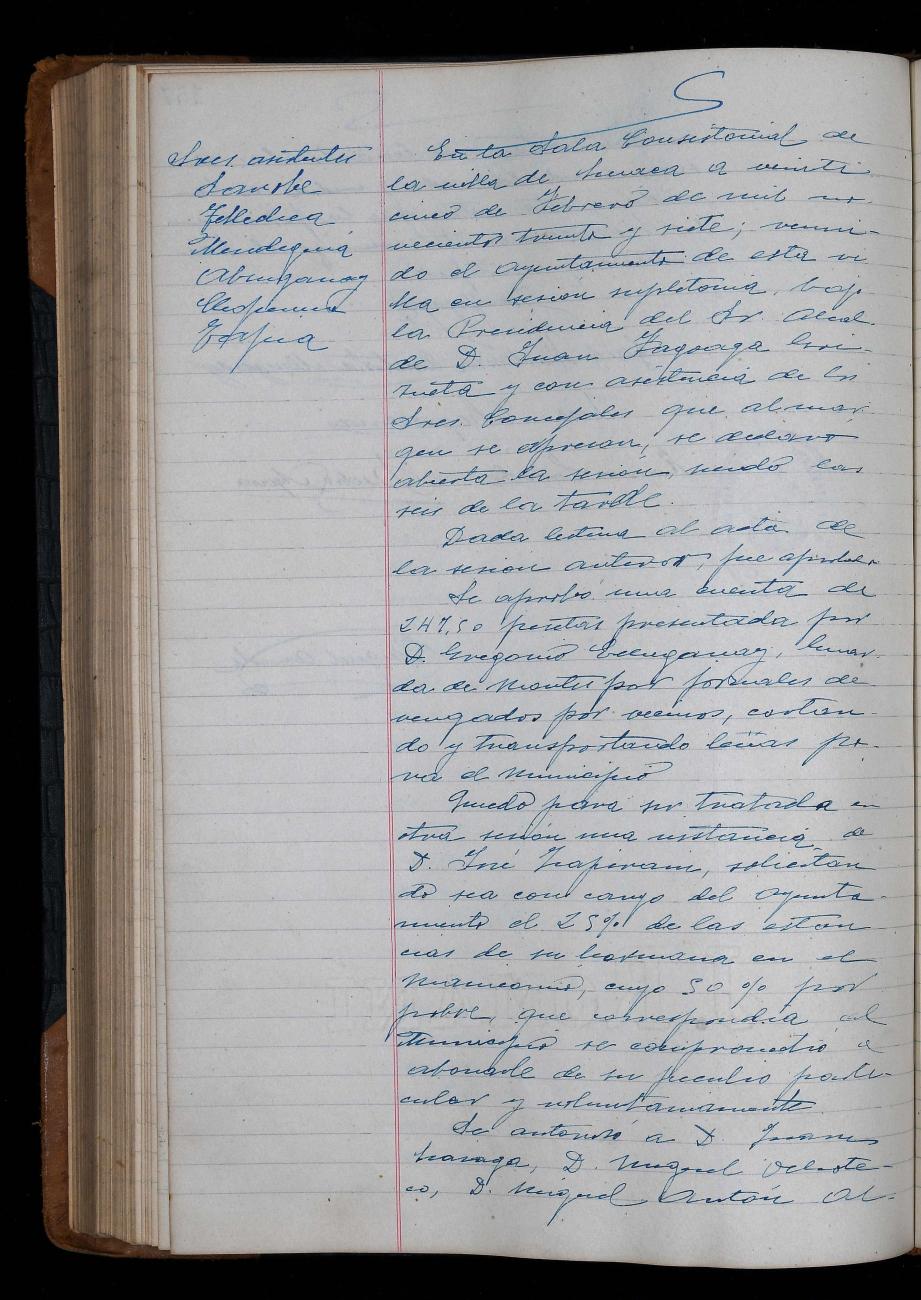 Sres. asistentes
Sanobe
Mendeguia
Abuinganay
Espa
En la Sala Consistorial de
la villa de Sunaca a veinti
cinco de Febrero de mil no-
vecientos treinta y siete; reuni-
do el Ayuntamiento de esta vi
lla en sesión supletoria, bajo
la Presidencia del Sr. Alcal
de D. Juan Fagoaga
y con asistencia de los
Sres. Concejales que al mar
gen se expresan, se declaró
abierta la sesión, siendo las
seis de la tarde.
Dada lectura al acta de
la sesión anterior, fue aprobada
Se aprobó una cuenta de
247,50 pesetas presentada por
D. Gregorio Guar-
da de Montes por jornales de
vengados por vecinos, cortan-
do y transportando leñas pa-
ra el Municipio
Quedó para ser tratada en
otra sesión una instancia de
D. José solicitan
do sea con cargo del Ayunta-
miento el 25% de las estan
cias de su hermana en el
manicomio, cuyo 50 % por
pobre, que correspondía al
Municipio se comprometió a
abonarle de su peculio parti-
cular y voluntariamente.
Se autorizó a D. Juan
D. Miguel
D. Miguel Antón Al-